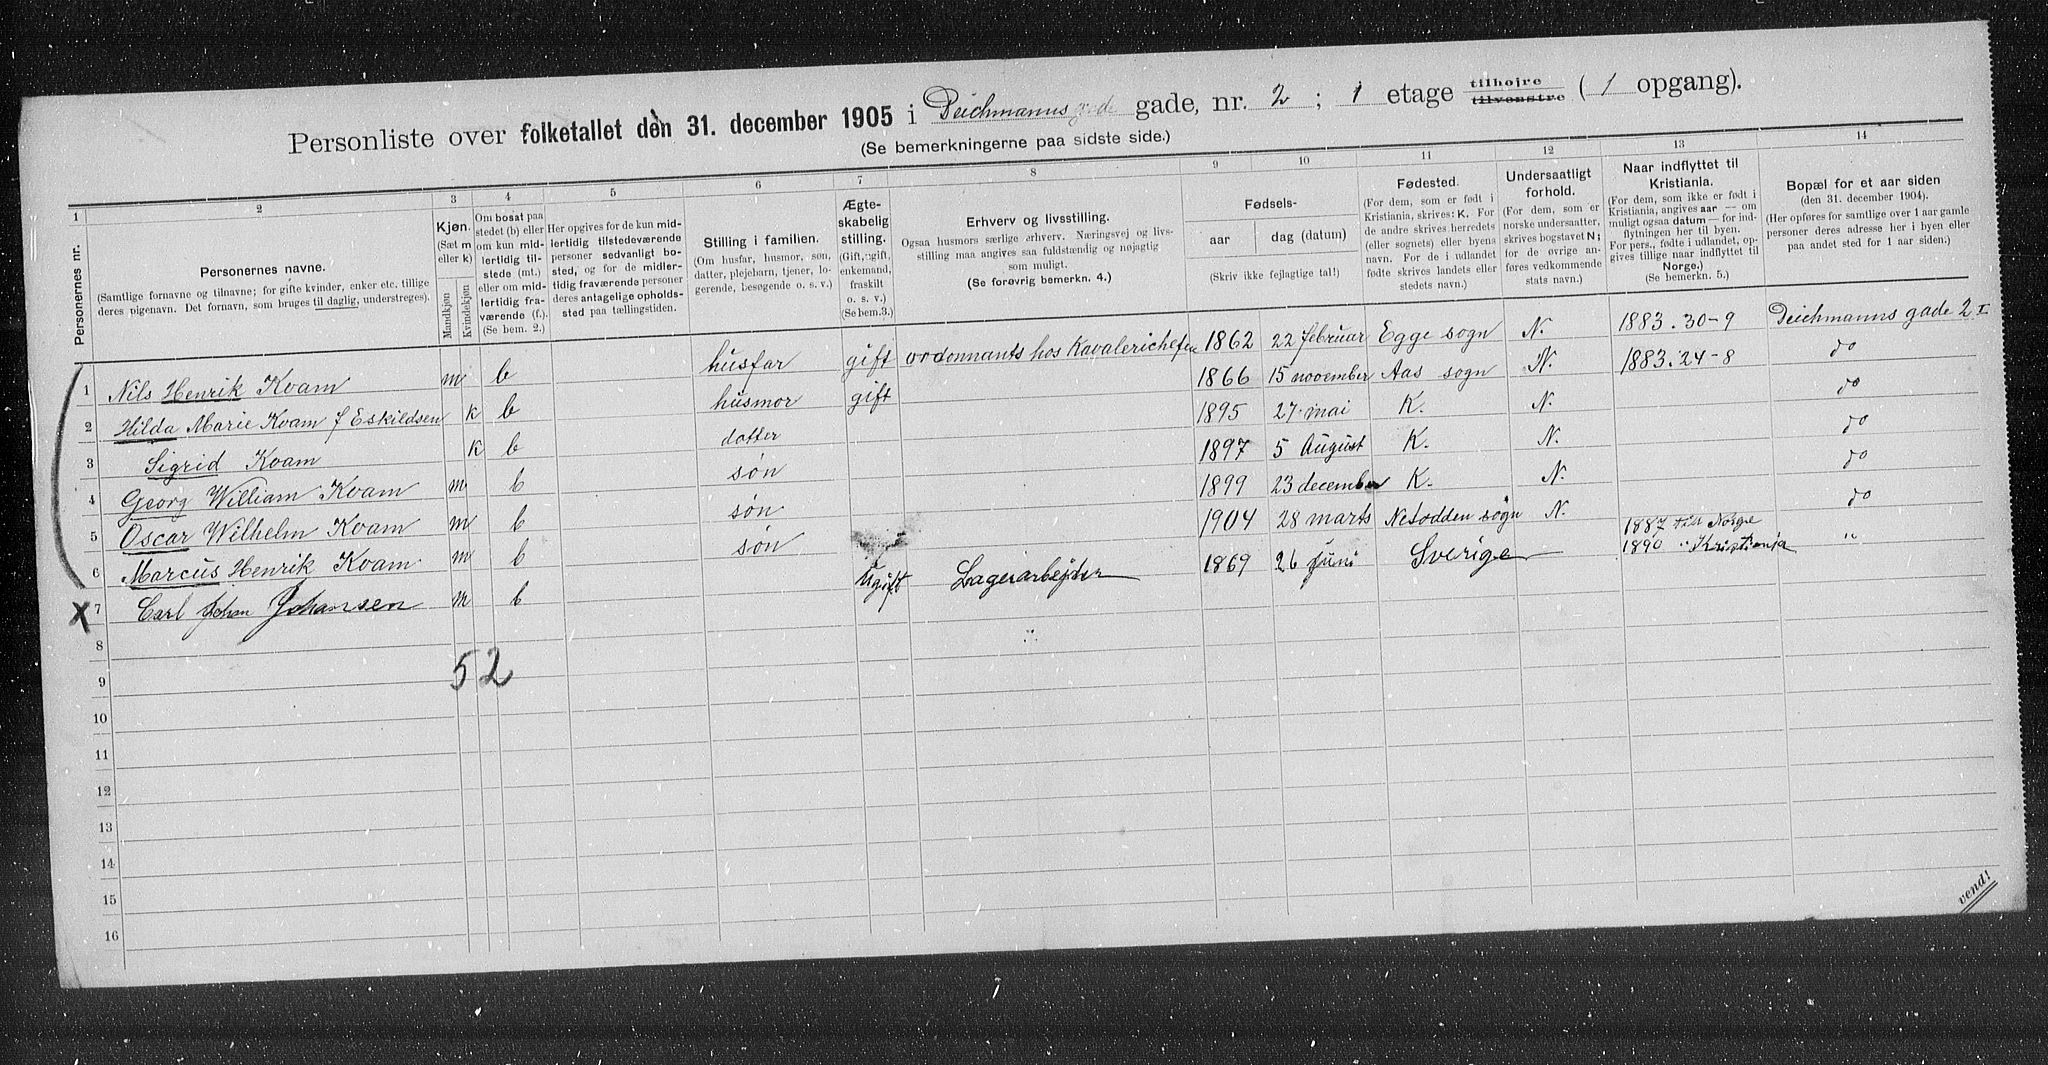 Personliste over folketallet den 31. december 1905 i Deichmanns gade, nr. 2; 1 etage tilhøjre tilvenstre (1 opgang).
(Se bemerkningerne paa sidste side.)
1 2 3 4 5 6 7 8 9 10 11 12 13 14
Personernes nr.
Personernes navne.
(Samtlige fornavne og tilnavne; for gifte kvinder, enker etc. tillige
deres pigenavn. Det fornavn, som bruges til daglig, understreges).
Kjøn.
(Sæt m
eller k)
Mandkjøn
Kvindekjøn
Om bosat paa
stedet (b) eller
om kun mid-
lertidig til-
stede (mt.)
eller om mid-
lertidig fra-
værende (f.).
(Se bem. 2.)
Her opgives for de kun mid-
lertidig tilstedeværende
personer sedvanlig bo-
sted, og for de midler-
tidig fraværende personer
deres antagelige opholds-
sted paa tællingstiden.
Stilling i familien.
(Om husfar, husmor, søn,
datter, plejebarn, tjener, lo-
gerende, besøgende o. s. v.)
Ægte-
skabelig
stilling.
(Gift, ugift,
enkemand,
fraskilt
o. s. v.)
(Se bem.3.)
Erhverv og livsstilling.
Ogsaa husmors særlige erhverv. Næringsvej og livs-
stilling maa angives saa fuldstændig og nøjagtig
som muligt.
(Se forøvrig bemerkn. 4.)
Fødsels-
aar dag (datum)
(Skriv ikke fejlagtige tal!)
Fødested.
(For dem, som er født i
Kristiania, skrives: K. For
de andre skrives herredets
(eller sognets) eller byens
navn. For de i udlandet
fødte skrives landets eller
stedets navn.)
Undersaatligt
forhold.
(For dem, som er
norske undersaatter,
skrives bogstavet N;
for de øvrige an-
føres vedkommende
stats navn.)
Naar indflyttet til
Kristiania.
(For dem, som ikke er født i
Kristiania, angives aar — om
muligt ogsaa datum — for ind-
flytningen her til byen.
For pers., fødte i udlandet, op-
gives tillige naar indflyttet til
Norge.)
(Se bemerkn. 5.)
Bopæl for et aar siden
(den 31. december 1904).
(Her opføres for samtlige over 1 aar gamle
personer deres adresse her i byen eller
paa andet sted for 1 aar siden.)
1 Nils Henrik Kvam m b husfar gift ordonnants hos Kavalerichefen 1862 22 februar Egge sogn N. 1883. 30-9 Deichmanns gade 2 I
2 Hilda Marie Kvam f Eskildsen k b husmor gift 1866 15 november Aas sogn N. 1883. 24-8 do
3 Sigrid Kvam k b datter 1895 27. mai K. N. do
4 Georg William Kvam m b søn 1897 5 August K. N. do
5 Oscar Wilhelm Kvam m b søn 1899 23 december K. N. do
6 Marcus Henrik Kvam m b søn 1904 28 marts Nesodden sogn N. do
X 7 Carl Johan Johansen m b Ugift Lagerarbejder 1869 26 Juni Sverige 1887 till Norge
1890 " Kristiania "
8
52
9
10
11
12
13
14
15
16
vend!